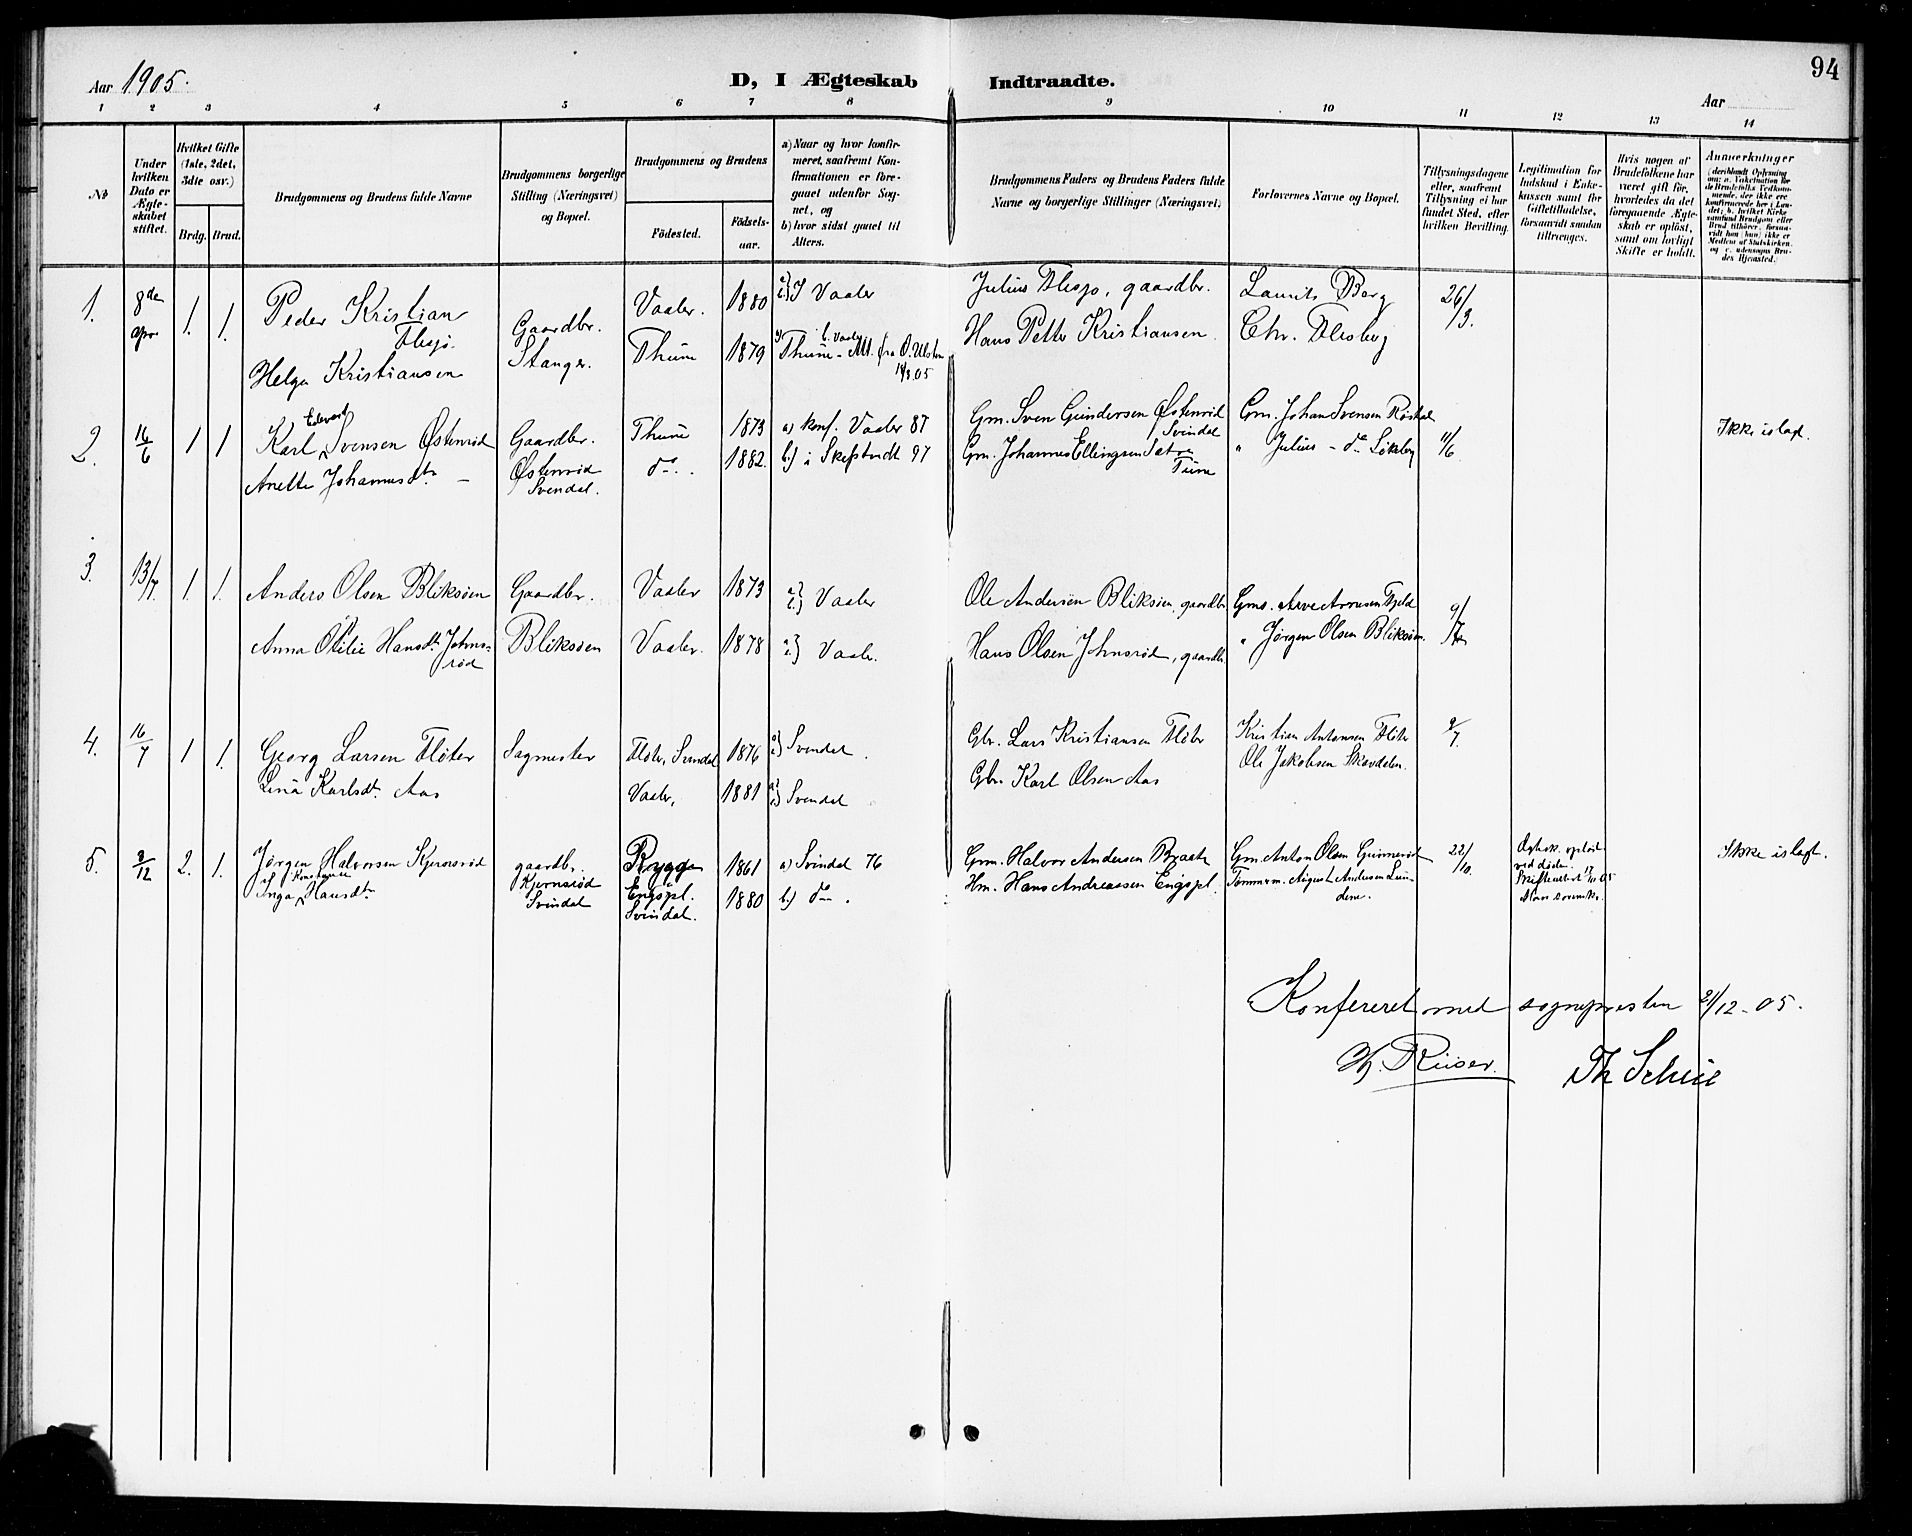 94
Aar 1905.
D, I Ægteskab Indtraadte.
Aar
1 2 3 4 5 6 7 8 9 10 11 12 13 14
No
Under hvilken Dato er Ægteskabet stiftet.
Hvilket Gifte (1ste, 2det, 3die osv.)
Brdg. Brud.
Brudgommens og Brudens fulde Navne
Brudgommens borgerlige Stilling (Næringsvei) og Bopæl.
Brudgommens og Brudens
Födested.
Födselsaar.
a) Naar og hvor konfirmeret, saafremt Konfirmationen er foregaaet udenfor Sognet, og
b) hvor sidst gaaet til Alters.
Brudgommens Faders og Brudens Faders fulde Navne og borgerlige Stillinger (Næringsvei)
Forlovernes Navne og Bopæl.
Tillysningsdagene eller, saafremt Tillysning ei har fundet Sted, efter hvilken Bevilling.
Legitimation for Indskud i Enkekassen samt for Giftetilladelse, forsaavidt saadan tiltrænges.
Hvis nogen af Brudefolkene har været gift för, hvorledes da det foregaaende Ægteskab er oplöst, samt om lovligt Skifte er holdt.
Anmerkninger (deriblandt Oplysning om: a. Vakcination for de Brudefolks Vedkommende, der ikke ere konfirmerede her i Landet; b. hvilket Kirkesamfund Brudgom eller Brud tilhörer, forsaavidt han (hun) ikke er Medlem af Statskirken, og c. udensogns Brudes Hjemsted.
1. 8de apr 1. 1. Peder Kristian Flesjø. Gaardbr. Vaaler. 1880 a) b) I Vaaler Julius Flesjø, gaardbr. Laurits Borg 26/3.
Helga Kristiansen Stanger. Thune 1879 a) Thune b. Vaaler - Att. fra O. 14/3 05 Hans Petter Kristiansen. Chr. Flesberg
2. 16/6 1 1 Karl Edvard Svensen Østenröd Gaardbr. Thune 1873 a) konf. Vaaler 87 Gm. Sven Gundersen Østenröd Svindal Gm. Johan Svensen 11/6 Ikke islagt.
Anette Johannesdtr - Østenröd Svendal. do. 1882. b.) i Skeptvedt 97 Gm. Johannes Ellingsen Tune " Julius - do
3. 13/7. 1. 1. Anders Olsen Bliksöen Gaardbr. Vaaler 1873 a) b.) Vaaler Ole Andersen Bliksöen, gaardbr. Gms. Arve Arnesen 9/7
Anna Otilie Hansdtr Johnsröd Bliksöen Vaaler. 1878 a) b) Vaaler. Hans Olsen Johnsröd, gaardbr. " Jørgen Olsen Bliksöen.
4. 16/7 1 1. Georg Larsen Fløter Sagmester Fløter, Svindal 1876 a) b) Svendal. Gbr. Lars Kristiansen Fløter Kristian Antonsen Fløter 9/7.
Lina Karlsdt. Aas Vaaler, 1881 a) b) Svendal Gbr. Karl Olsen Aas Ole Jakobsen Skovdalen.
5. 9/12 2. 1. Jørgen Halvorsen Kjernsröd gaardbr. Kjernsröd Svindal Rygge 1861 a) Svindal 76 Grm. Halvor Andersen Braate Gm. Anton Olsen 22/10. Ægtesk. opløst ved døden. Skifteattest 05 Ikke islagt.
Inga Konstanse Hansdtr Engspl. Svindal. 1880 b.) do. Hm. Hans Andreassen Engspl. Tømmerm. August Andersen Lundene.
Konfereret med sognepresten 21/12 - 05.
H. Riiser. Th Schiie